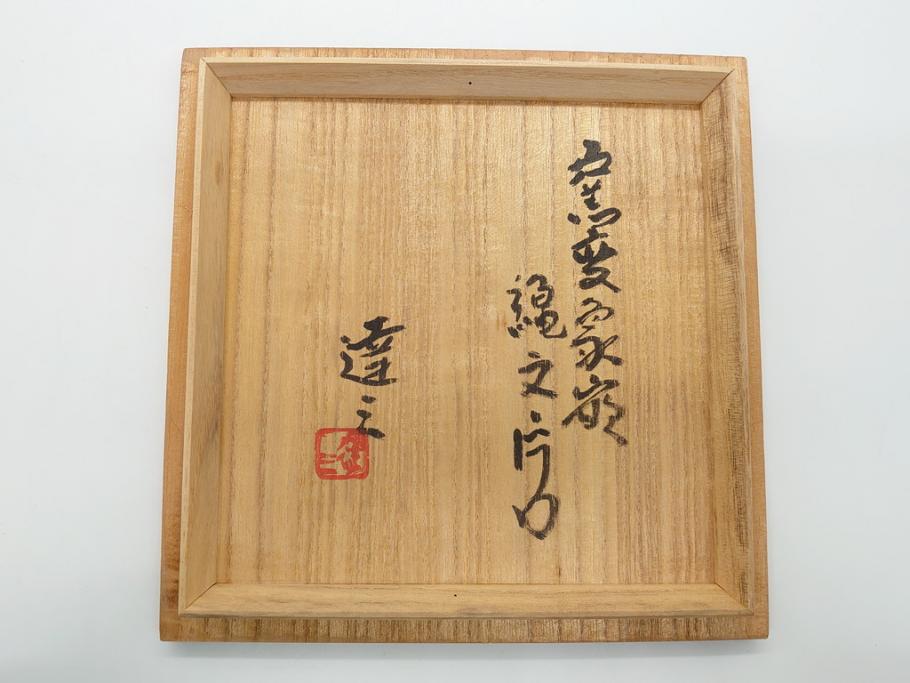 窯変象嵌
縄文片口
達三